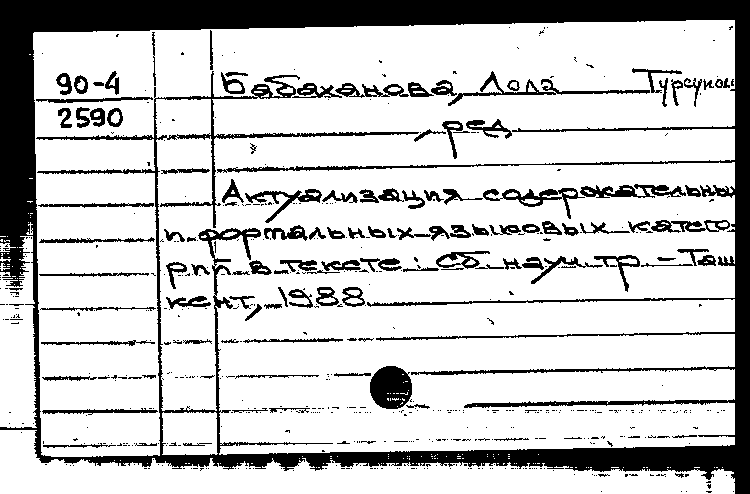 90-4 Бабаханова, Лола Турсунов
2590
, ред.
Актуализация содержательны
и формальных языковых катего-
рий в тексте: Сб. науч. тр. - Таш
кент, 1988